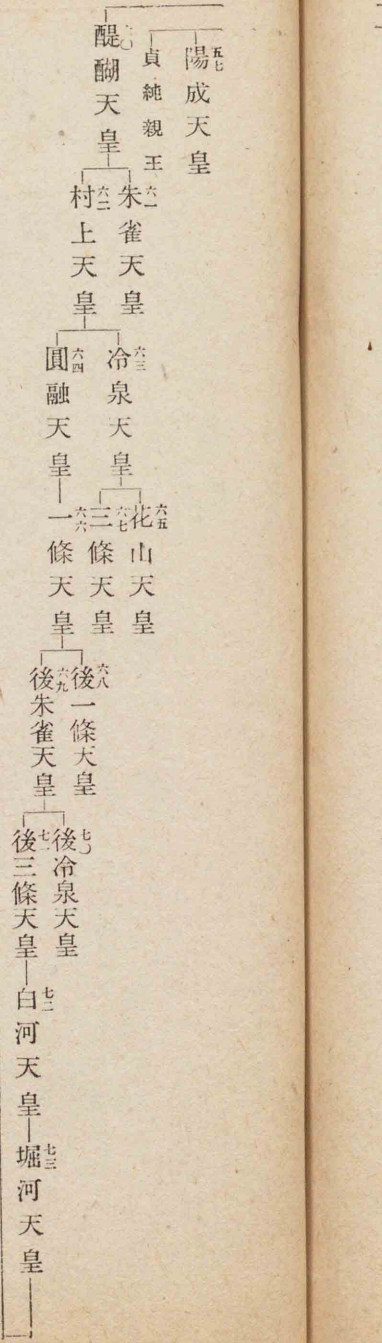 五七
陽成天皇
貞純親王
六〇
醍醐天皇
六一
朱雀天皇
六二
村上天皇
六三
冷泉天皇
六四
圓融天皇
六五
花山天皇
六七
三條天皇
六六
一條天皇
六八
後一條天皇
六九
後朱雀天皇
七〇
後冷泉天皇
七一
後三條天皇
七二
白河天皇
七三
堀河天皇